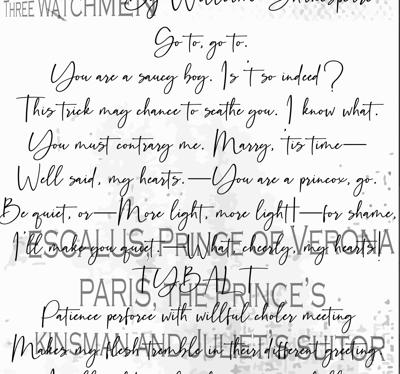 THREE WATCHMEN
By William Shakespeare
Go to, go to.
You are a saucy boy. Is 't so indeed?
This trick may chance to scathe you. I know what.
You must contrary me. Marry, 'tis time—
Well said, my hearts.—You are a princox, go.
Be quiet, or—More light, more light!—for shame,
I'll make you quiet.—What, cheerly, my hearts!
ESCALUS, PRINCE OF VERONA
TYBALT
PARIS, THE PRINCE'S
Patience perforce with willful choler meeting
KINSMAN AND JULIET'S SUITOR
Makes my flesh tremble in their different greeting.